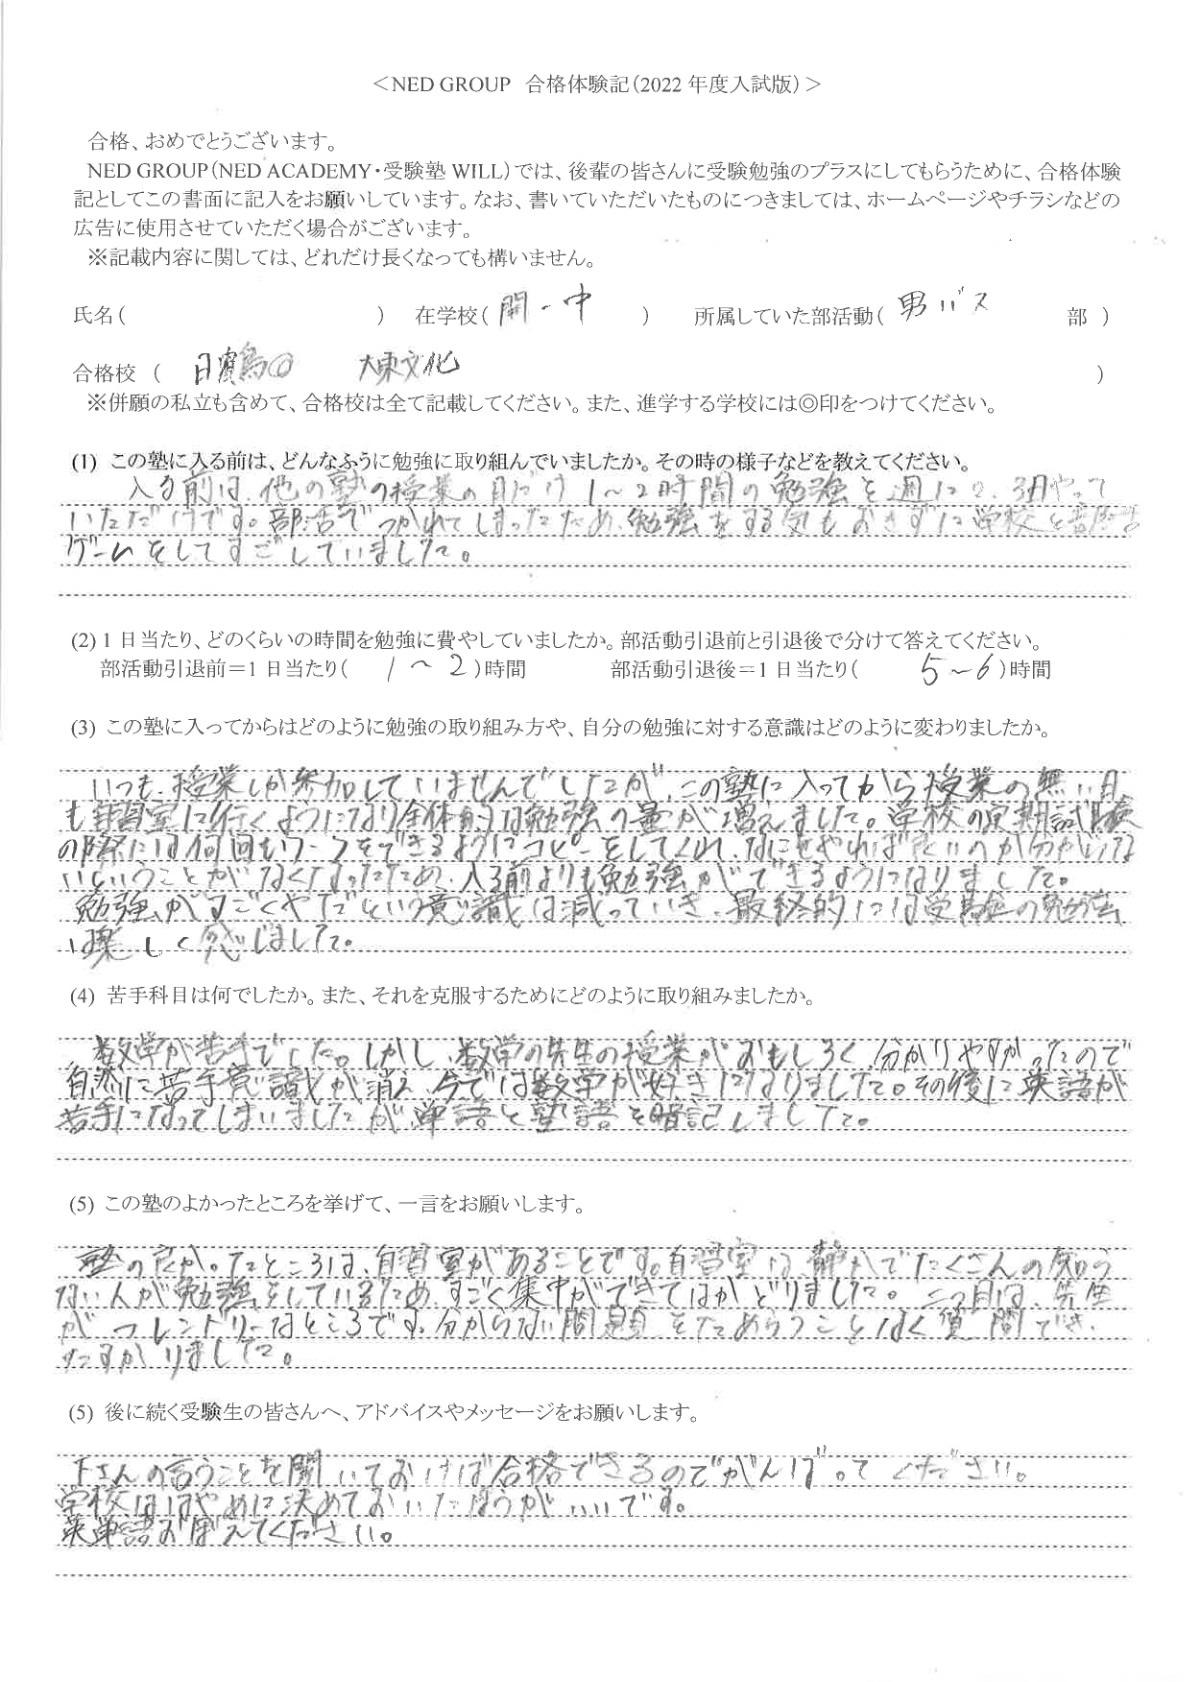 ＜NED GROUP 合格体験記（2022 年度入試版）＞
合格、おめでとうございます。
NED GROUP（NED ACADEMY・受験塾 WILL）では、後輩の皆さんに受験勉強のプラスにしてもらうために、合格体験
記としてこの書面に記入をお願いしています。なお、書いていただいたものにつきましては、ホームページやチラシなどの
広告に使用させていただく場合がございます。
※記載内容に関しては、どれだけ長くなっても構いません。
氏名（ ） 在学校（ 開一中 ） 所属していた部活動（ 男バス 部 ）
合格校 （ 大東文化 ）
※併願の私立も含めて、合格校は全て記載してください。また、進学する学校には◎印をつけてください。
(1) この塾に入る前は、どんなふうに勉強に取り組んでいましたか。その時の様子などを教えてください。
入る前は、他の塾の授業の日だけ1～2時間の勉強を週に2、3日やって
いただけです。部活でつかれてしまったため、勉強をする気もおきずに学校と部活
ゲームをしてすごしていました。
(2) 1 日当たり、どのくらいの時間を勉強に費やしていましたか。部活動引退前と引退後で分けて答えてください。
部活動引退前＝1 日当たり（ 1～2 ）時間 部活動引退後＝1 日当たり（ 5～6 ）時間
(3) この塾に入ってからはどのように勉強の取り組み方や、自分の勉強に対する意識はどのように変わりましたか。
いつも、授業しか参加していませんでしたが、この塾に入ってから授業の無い日
も自習室に行くようになり全体的な勉強の量が増えました。学校の定期試験
の際には何回もワークをできるようにコピーをしてくれ、なにをやれば良いのか分からな
いということがなくなったため、入る前よりも勉強ができるようになりました。
勉強がすごくやだという意識は減っていき、最終的には受験の勉強
は楽しく感じました。
(4) 苦手科目は何でしたか。また、それを克服するためにどのように取り組みましたか。
数学が苦手でした。しかし、数学の先生の授業がおもしろく、分かりやすかったので
自然に苦手意識が消え、今では数学が好きになりました。その後に英語が
苦手になってしまいましたが、単語と塾語を暗記しました。
(5) この塾のよかったところを挙げて、一言をお願いします。
塾の良かったところは、自習室があることです。自習室は静かでたくさんの知ら
ない人が勉強をしているため、すごく集中ができてはかどりました。二つ目は、先生
がフレンドリーなところです。分からない問題をためらうことなく質問でき、
たすかりました。
(5) 後に続く受験生の皆さんへ、アドバイスやメッセージをお願いします。
下さんの言うことを聞いておけば合格できるのでがんばってください。
学校ははやめに決めておいたほうがいいです。
英単語おぼえてください。